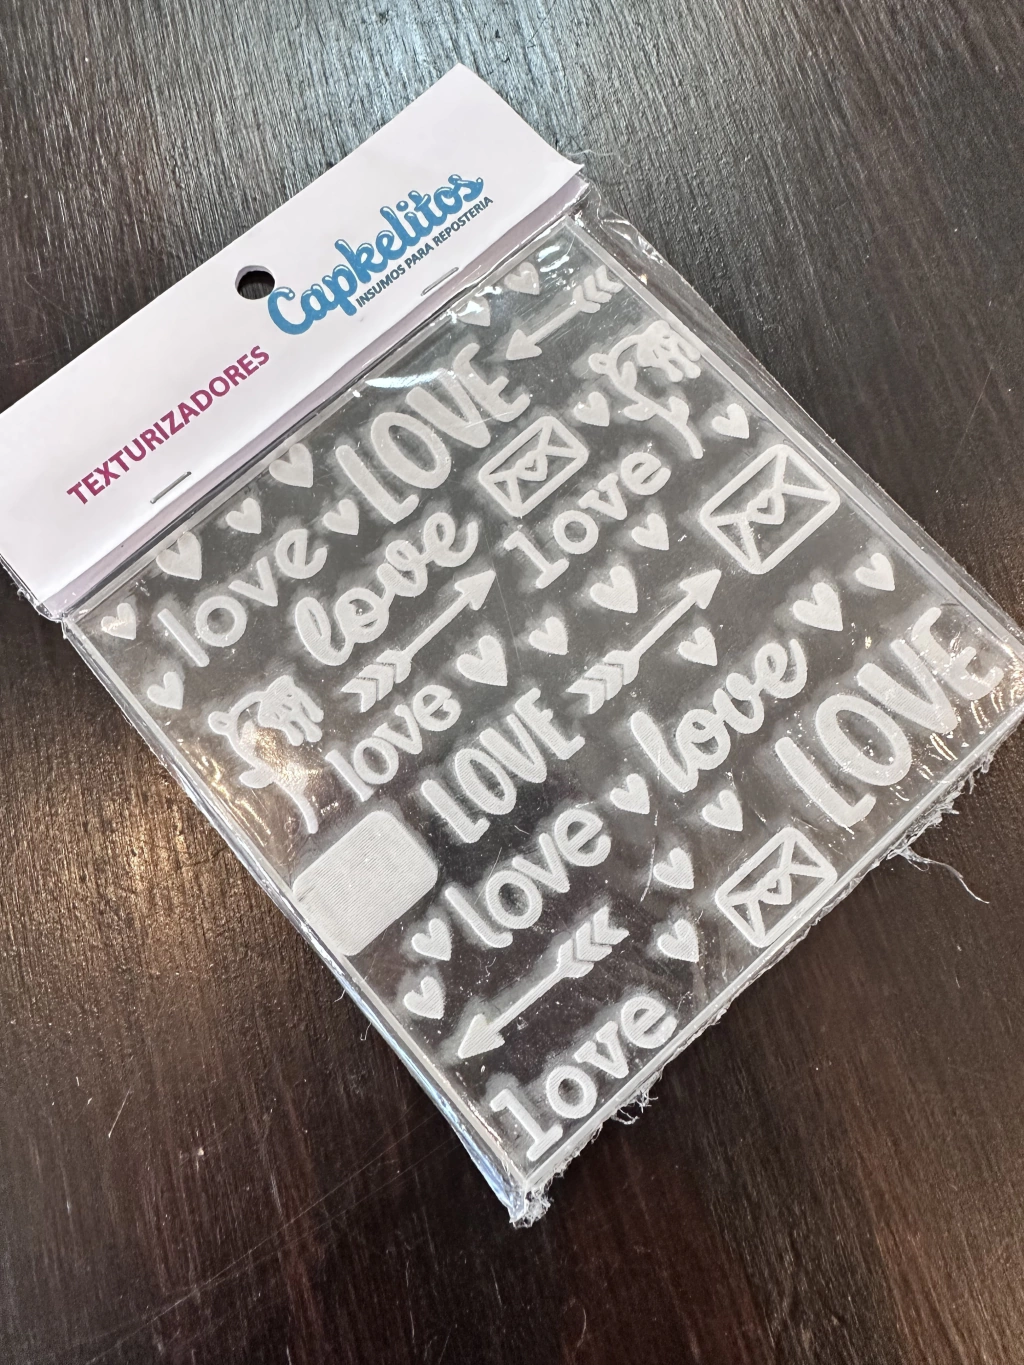 Capkelitos
INSUMOS PARA REPOSTERIA
TEXTURIZADORES
LOVE
love
love
love
love
LOVE
love
LOVE
love
love